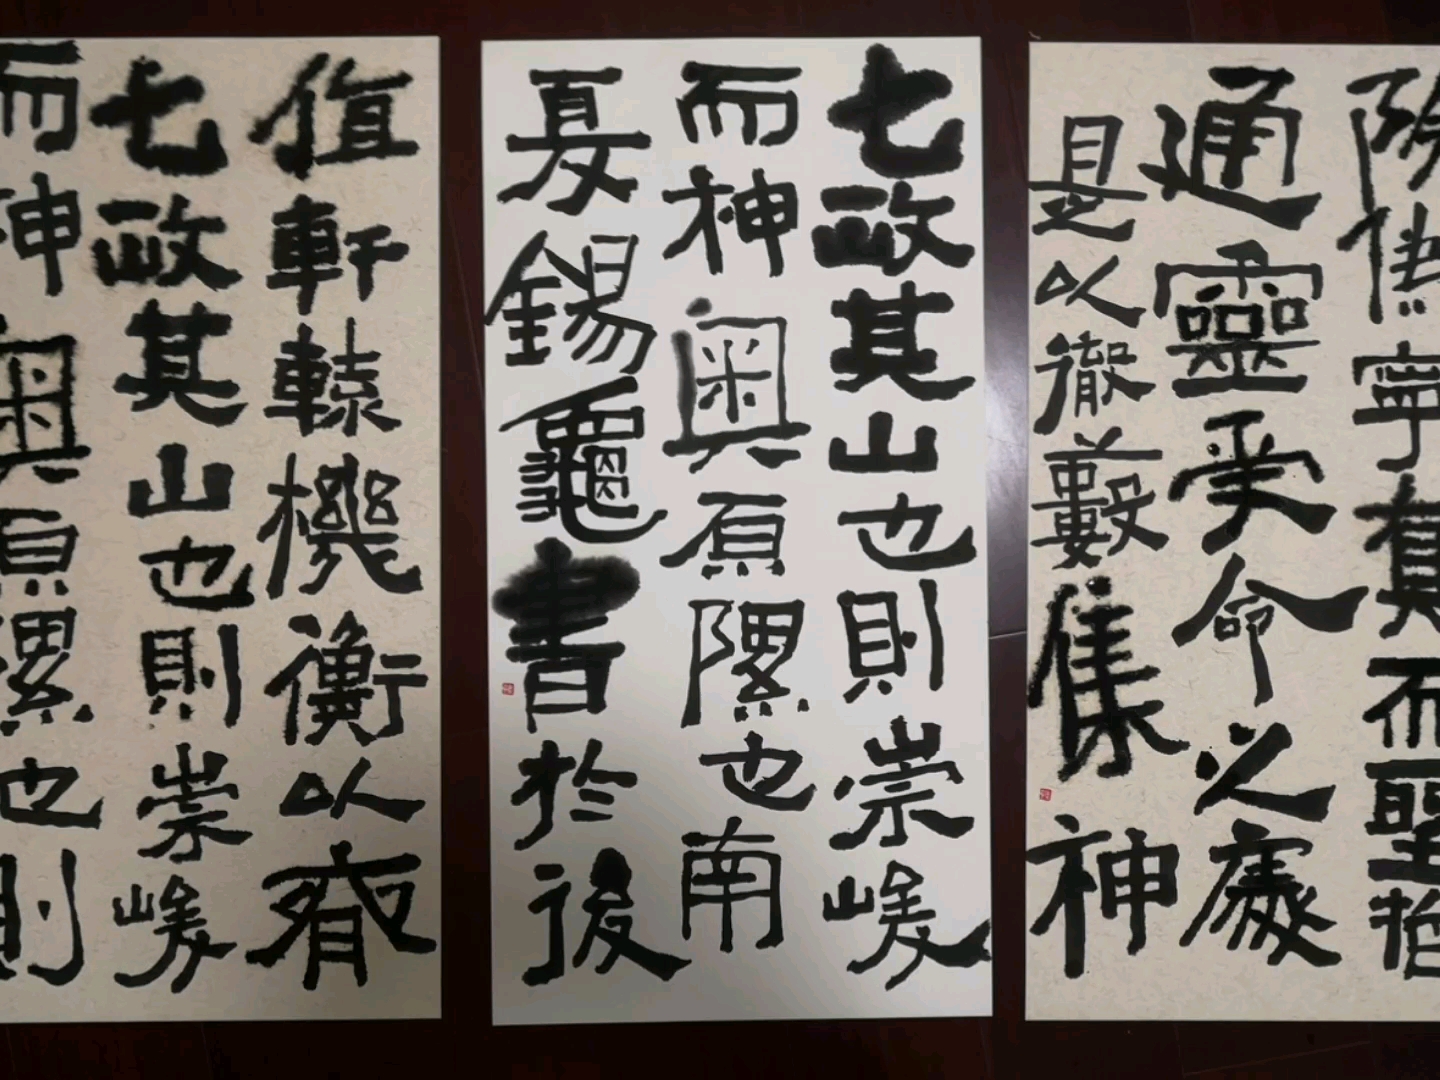 寧真而聖
通靈受命之處
是以徹藪集神
七政其山也則崇峻
而神奧原隰也南
夏錫龜書於後
值軒轅機衡以齊
七政其山也則崇峻
而神奧原隰也則